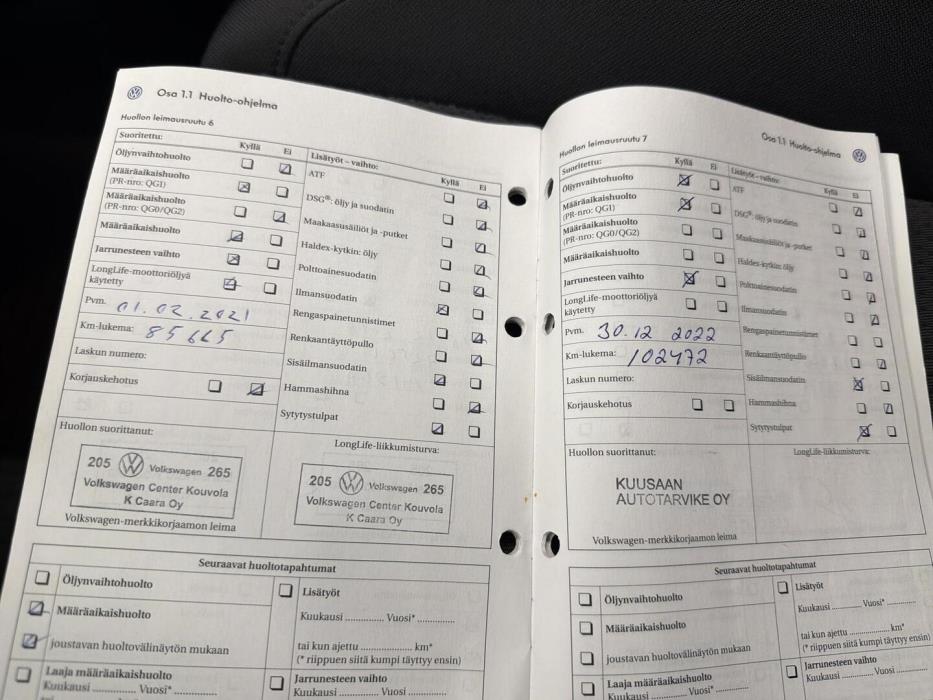 Osa 1.1 Huolto-ohjelma
Huollon leimausruutu 6
Suoritettu: Kyllä Ei
Öljynvaihtohuolto
Määräaikaishuolto
(PR-nro: QG1)
Määräaikaishuolto
(PR-nro: QG0/QG2)
Määräaikaishuolto
Jarrunesteen vaihto
LongLife-moottoriöljyä
käytetty
Pvm. 01.02.2021
Km-lukema: 85665
Laskun numero:
Korjauskehotus
Huollon suorittanut:
205 Volkswagen 265
Volkswagen Center Kouvola
K Caara Oy
Volkswagen-merkkikorjaamon leima
Lisätyöt – vaihto: Kyllä Ei
ATF
DSG®: öljy ja suodatin
Maakaasusäiliöt ja -putket
Haldex-kytkin: öljy
Polttoainesuodatin
Ilmansuodatin
Rengaspainetunnistimet
Renkaantäyttöpullo
Sisäilmansuodatin
Hammashihna
Sytytystulpat
LongLife-liikkumisturva:
205 Volkswagen 265
Volkswagen Center Kouvola
K Caara Oy
Seuraavat huoltotapahtumat
Öljynvaihtohuolto
Määräaikaishuolto
joustavan huoltovälinäytön mukaan
Laaja määräaikaishuolto
Kuukausi ............ Vuosi* ............
Lisätyöt
Kuukausi ............ Vuosi* ............
tai kun ajettu ............ km*
(* riippuen siitä kumpi täyttyy ensin)
Jarrunesteen vaihto
Kuukausi ............ Vuosi* ............
Osa 1.1 Huolto-ohjelma
Huollon leimausruutu 7
Suoritettu: Kyllä Ei
Öljynvaihtohuolto
Määräaikaishuolto
(PR-nro: QG1)
Määräaikaishuolto
(PR-nro: QG0/QG2)
Määräaikaishuolto
Jarrunesteen vaihto
LongLife-moottoriöljyä
käytetty
Pvm. 30.12 2022
Km-lukema: 102472
Laskun numero:
Korjauskehotus
Huollon suorittanut:
KUUSAAN
AUTOTARVIKE OY
Volkswagen-merkkikorjaamon leima
Lisätyöt – vaihto: Kyllä Ei
ATF
DSG®: öljy ja suodatin
Maakaasusäiliöt ja -putket
Haldex-kytkin: öljy
Polttoainesuodatin
Ilmansuodatin
Rengaspainetunnistimet
Renkaantäyttöpullo
Sisäilmansuodatin
Hammashihna
Sytytystulpat
LongLife-liikkumisturva:
Seuraavat huoltotapahtumat
Öljynvaihtohuolto
Määräaikaishuolto
joustavan huoltovälinäytön mukaan
Laaja määräaikaishuolto
Kuukausi ............ Vuosi* ............
Lisätyöt
Kuukausi ............ Vuosi* ............
tai kun ajettu ............ km*
(* riippuen siitä kumpi täyttyy ensin)
Jarrunesteen vaihto
Kuukausi ............ Vuosi* ............